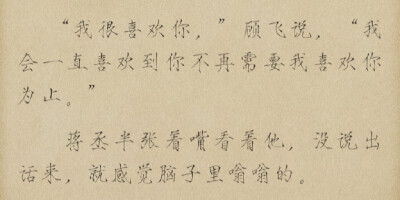 “我很喜欢你，”顾飞说，“我
会一直喜欢到你不再需要我喜欢你
为止。”
蒋丞半张着嘴看着他，没说出
话来，就感觉脑子里嗡嗡的。